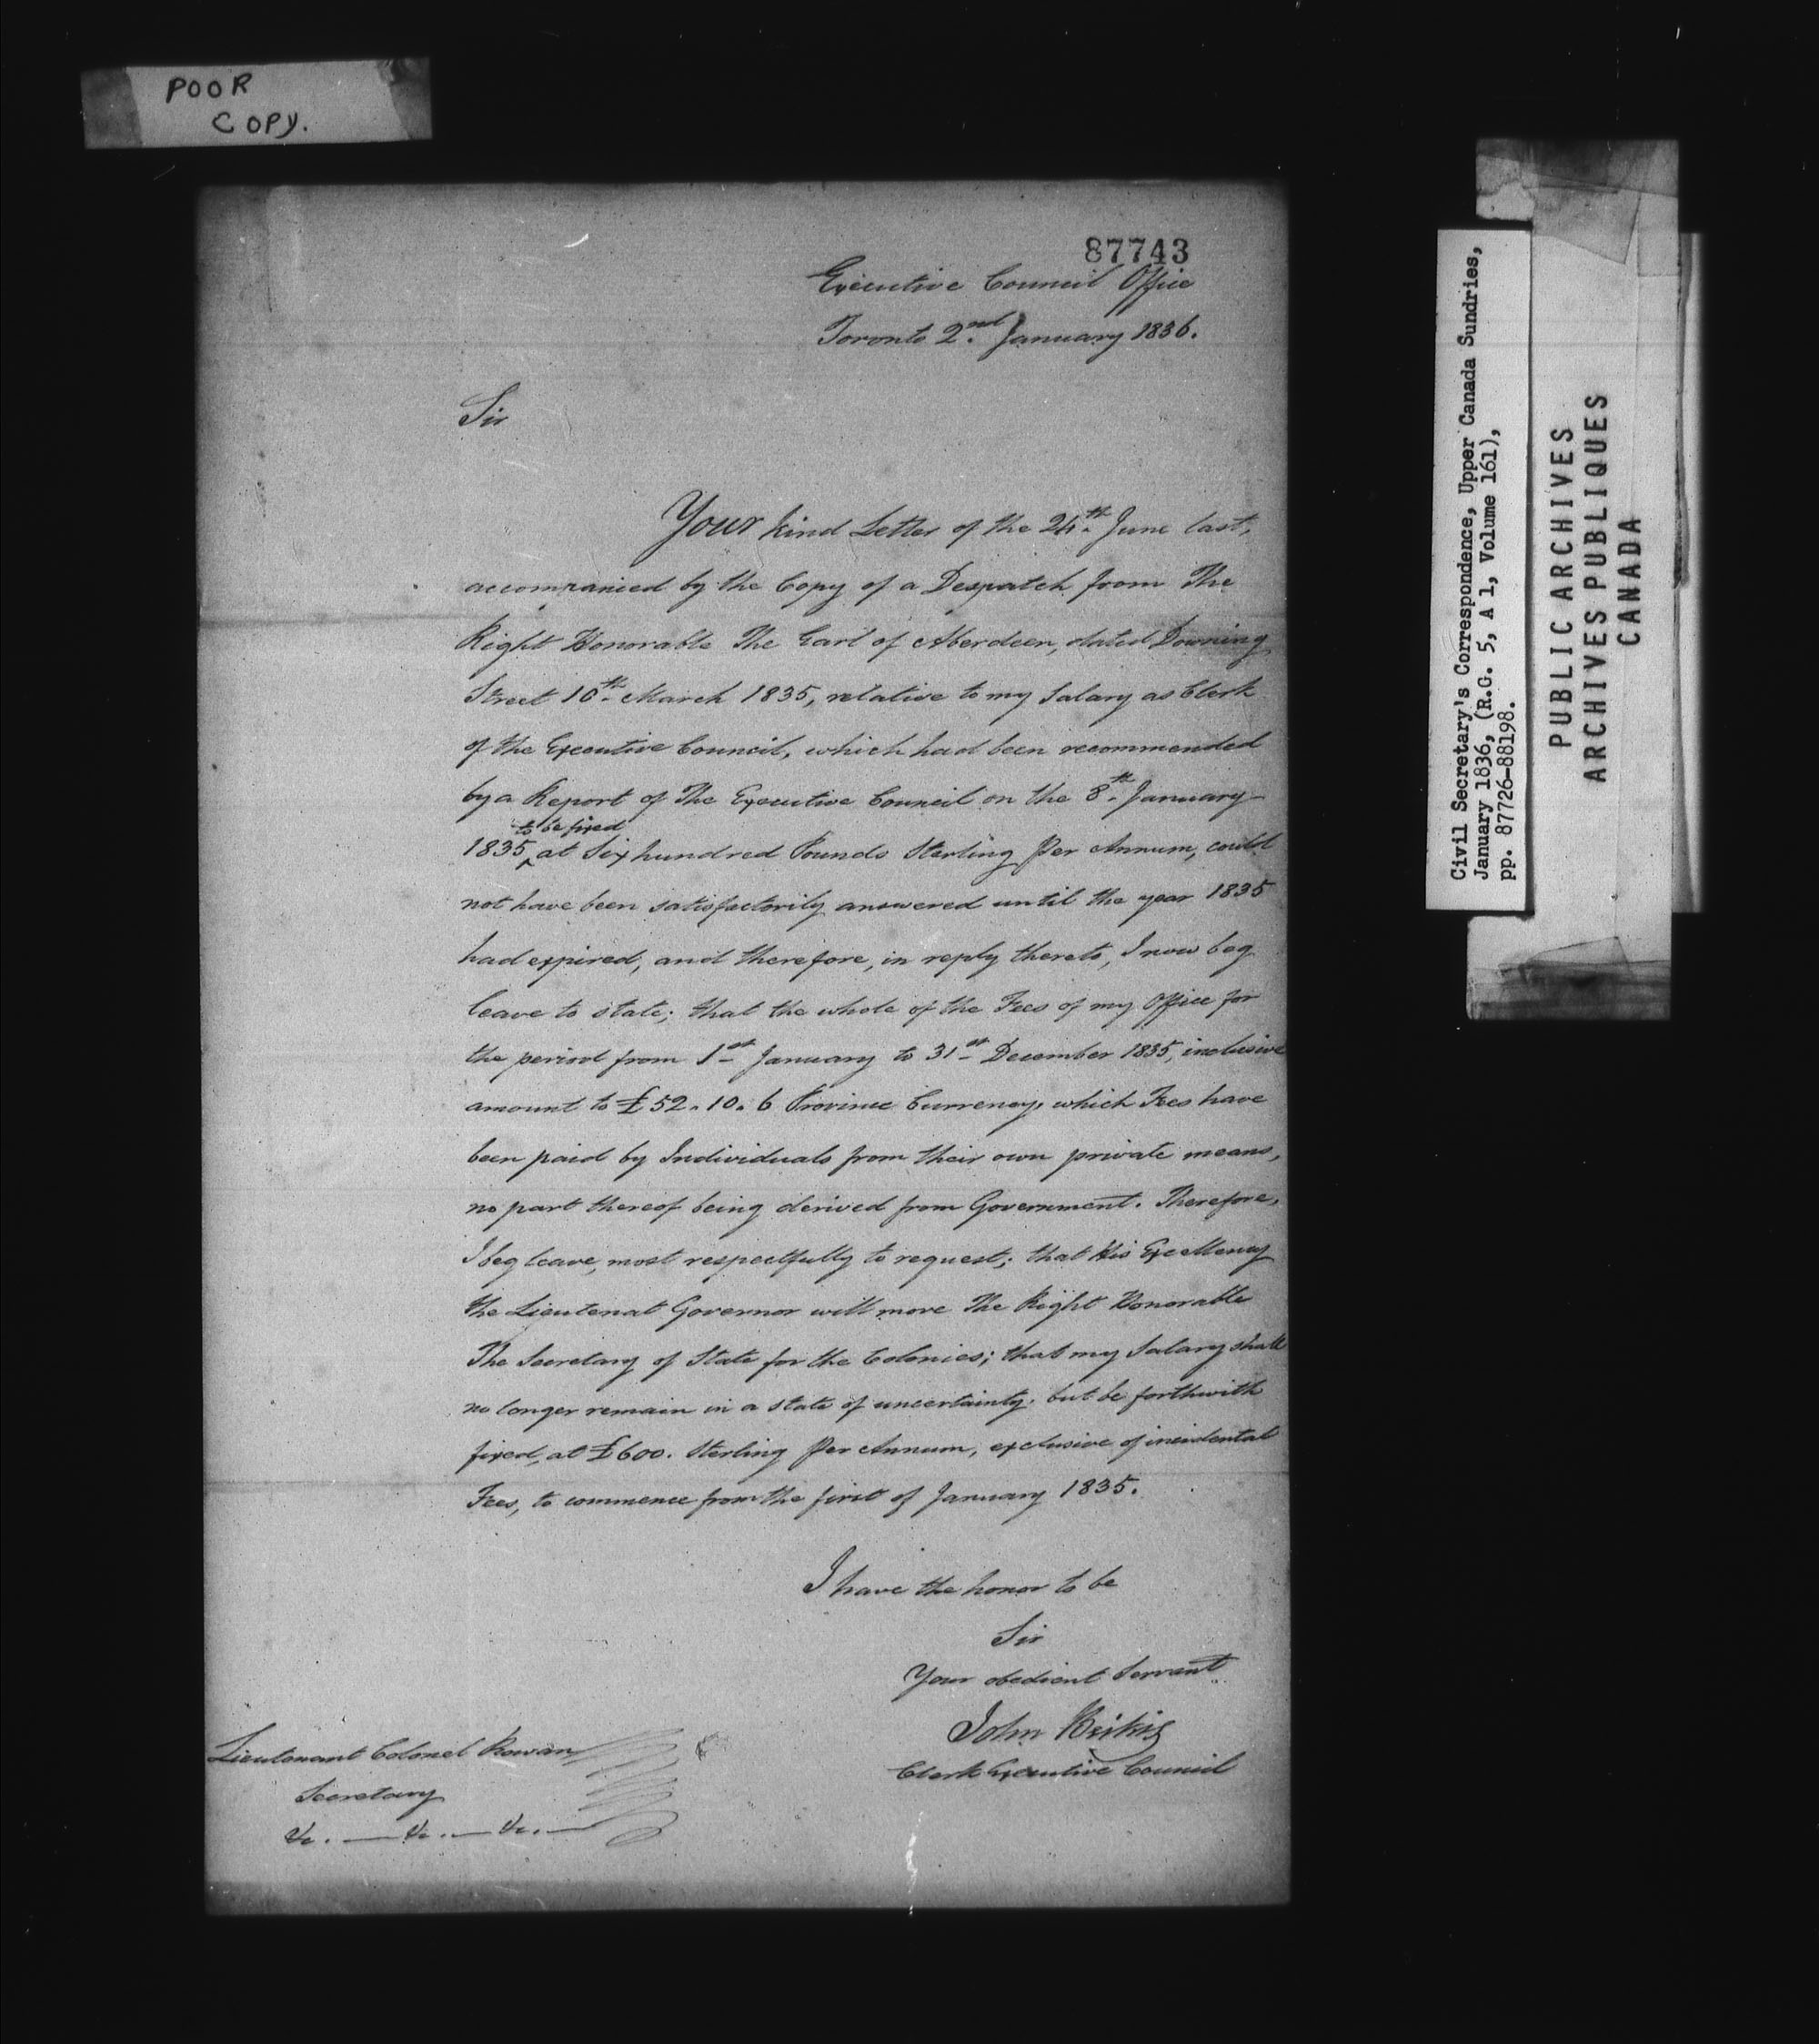 POOR
COPY.
87743
Executive Council Office
Toronto 2nd January 1836.
Sir
Your kind Letter of the 24th June last,
accompanied by the Copy of a Despatch from The
Right Honorable The Earl of Aberdeen, dated Downing
Street 10th March 1835, relative to my Salary as Clerk
of the Executive Council, which had been recommended
by a Report of The Executive Council on the 8th January
to be fixed
1835 ‸ at Six hundred Pounds Sterling Per Annum, could
not have been satisfactorily answered until the year 1835
had expired, and therefore, in reply thereto, I now beg
leave to state; that the whole of the Fees of my Office for
the period from 1st January to 31st December 1835, inclusive
amount to £52.10.6 Province Currency, which Fees have
been paid by Individuals from their own private means,
no part thereof being derived from Government. Therefore,
I beg leave, most respectfully to request; that His Excellency
the Lieutenat Governor will move The Right Honorable
The Secretary of State for the Colonies; that my Salary shall
no longer remain in a state of uncertainty, but be forthwith
fixed, at £600. Sterling Per Annum, exclusive of incidental
Fees, to commence from the first of January 1835.
I have the honor to be
Sir
Your obedient Servant
John Beikie
Clerk Executive Council
Lieutenant Colonel Rowan
Secretary
&c. — &c. — &c. —
Civil Secretary's Correspondence, Upper Canada Sundries,
January 1836, (R.G. 5, A 1, Volume 161),
pp. 87726-88198.
PUBLIC ARCHIVES
ARCHIVES PUBLIQUES
CANADA